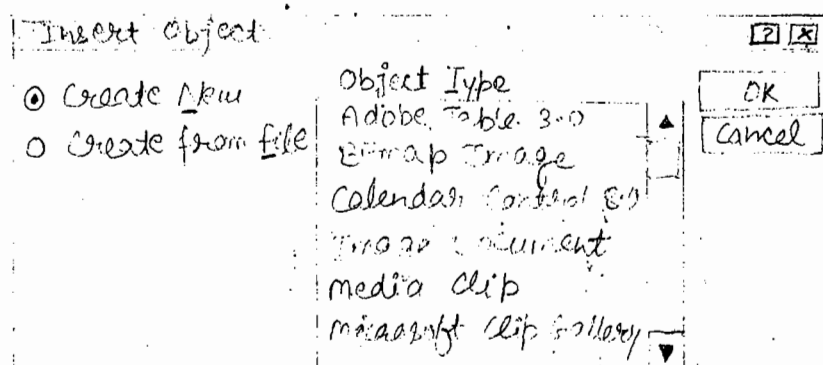 Insert Object
? X
Create New
Create from file
Object Type
Adobe Table 3.0
Bitmap Image
Calendar Control 8.0
Image Document
media clip
microsoft clip Gallery
OK
Cancel